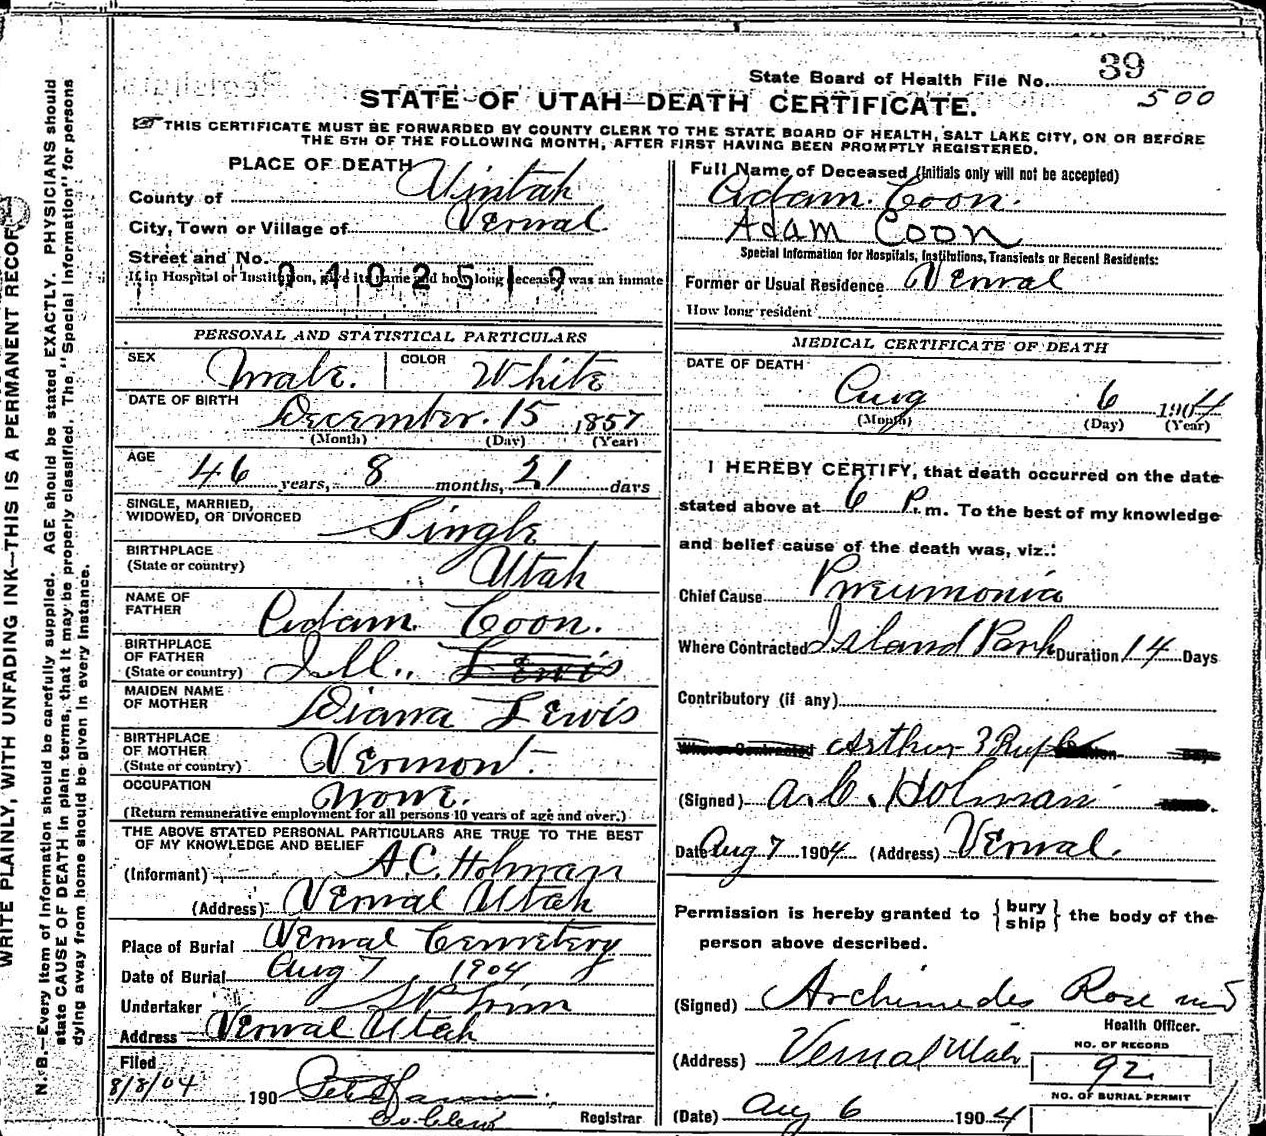 State Board of Health File No. 39
500
STATE OF UTAH—DEATH CERTIFICATE.
THIS CERTIFICATE MUST BE FORWARDED BY COUNTY CLERK TO THE STATE BOARD OF HEALTH, SALT LAKE CITY, ON OR BEFORE
THE 5TH OF THE FOLLOWING MONTH, AFTER FIRST HAVING BEEN PROMPTLY REGISTERED.
PLACE OF DEATH
County of Uintah
City, Town or Village of Vernal
Street and No.
If in Hospital or Institution, give its name and how long deceased was an inmate
0402519
PERSONAL AND STATISTICAL PARTICULARS
SEX Male. COLOR White
DATE OF BIRTH December. 15, 1857
(Month) (Day) (Year)
AGE 46 years, 8 months, 21 days
SINGLE, MARRIED,
WIDOWED, OR DIVORCED Single
BIRTHPLACE
(State or country) Utah
NAME OF
FATHER Adam Coon.
BIRTHPLACE
OF FATHER
(State or country) Ill., Lewis
MAIDEN NAME
OF MOTHER Diana Lewis
BIRTHPLACE
OF MOTHER
(State or country) Vermont.
OCCUPATION None.
(Return remunerative employment for all persons 10 years of age and over.)
THE ABOVE STATED PERSONAL PARTICULARS ARE TRUE TO THE BEST
OF MY KNOWLEDGE AND BELIEF
(Informant) A.C. Holman
(Address) Vernal Utah
Place of Burial Vernal Cemetery
Date of Burial Aug 7, 1904
Undertaker
Address Vernal Utah
Filed
8/8/04 190
Co. Clerk Registrar
Full Name of Deceased (Initials only will not be accepted)
Adam. Coon.
Adam Coon
Special Information for Hospitals, Institutions, Transients or Recent Residents:
Former or Usual Residence Vernal
How long resident
MEDICAL CERTIFICATE OF DEATH
DATE OF DEATH
Aug 6 1904
(Month) (Day) (Year)
I HEREBY CERTIFY, that death occurred on the date
stated above at 6 P. m. To the best of my knowledge
and belief cause of the death was, viz.:
Chief Cause Pneumonia
Where Contracted Island Park Duration 14 Days
Contributory (if any)
Where Contracted Arthur Duration Days
(Signed) A.C. Holman
Date Aug 7 1904 (Address) Vernal.
Permission is hereby granted to {bury
ship} the body of the
person above described.
(Signed) Archimedes Rose MD
Health Officer.
(Address) Vernal Utah
NO. OF RECORD
92
NO. OF BURIAL PERMIT
(Date) Aug 6 1904
WRITE PLAINLY, WITH UNFADING INK—THIS IS A PERMANENT RECORD
N. B.—Every item of information should be carefully supplied. AGE should be stated EXACTLY. PHYSICIANS should
state CAUSE OF DEATH in plain terms, that it may be properly classified. The "Special Information" for persons
dying away from home should be given in every instance.